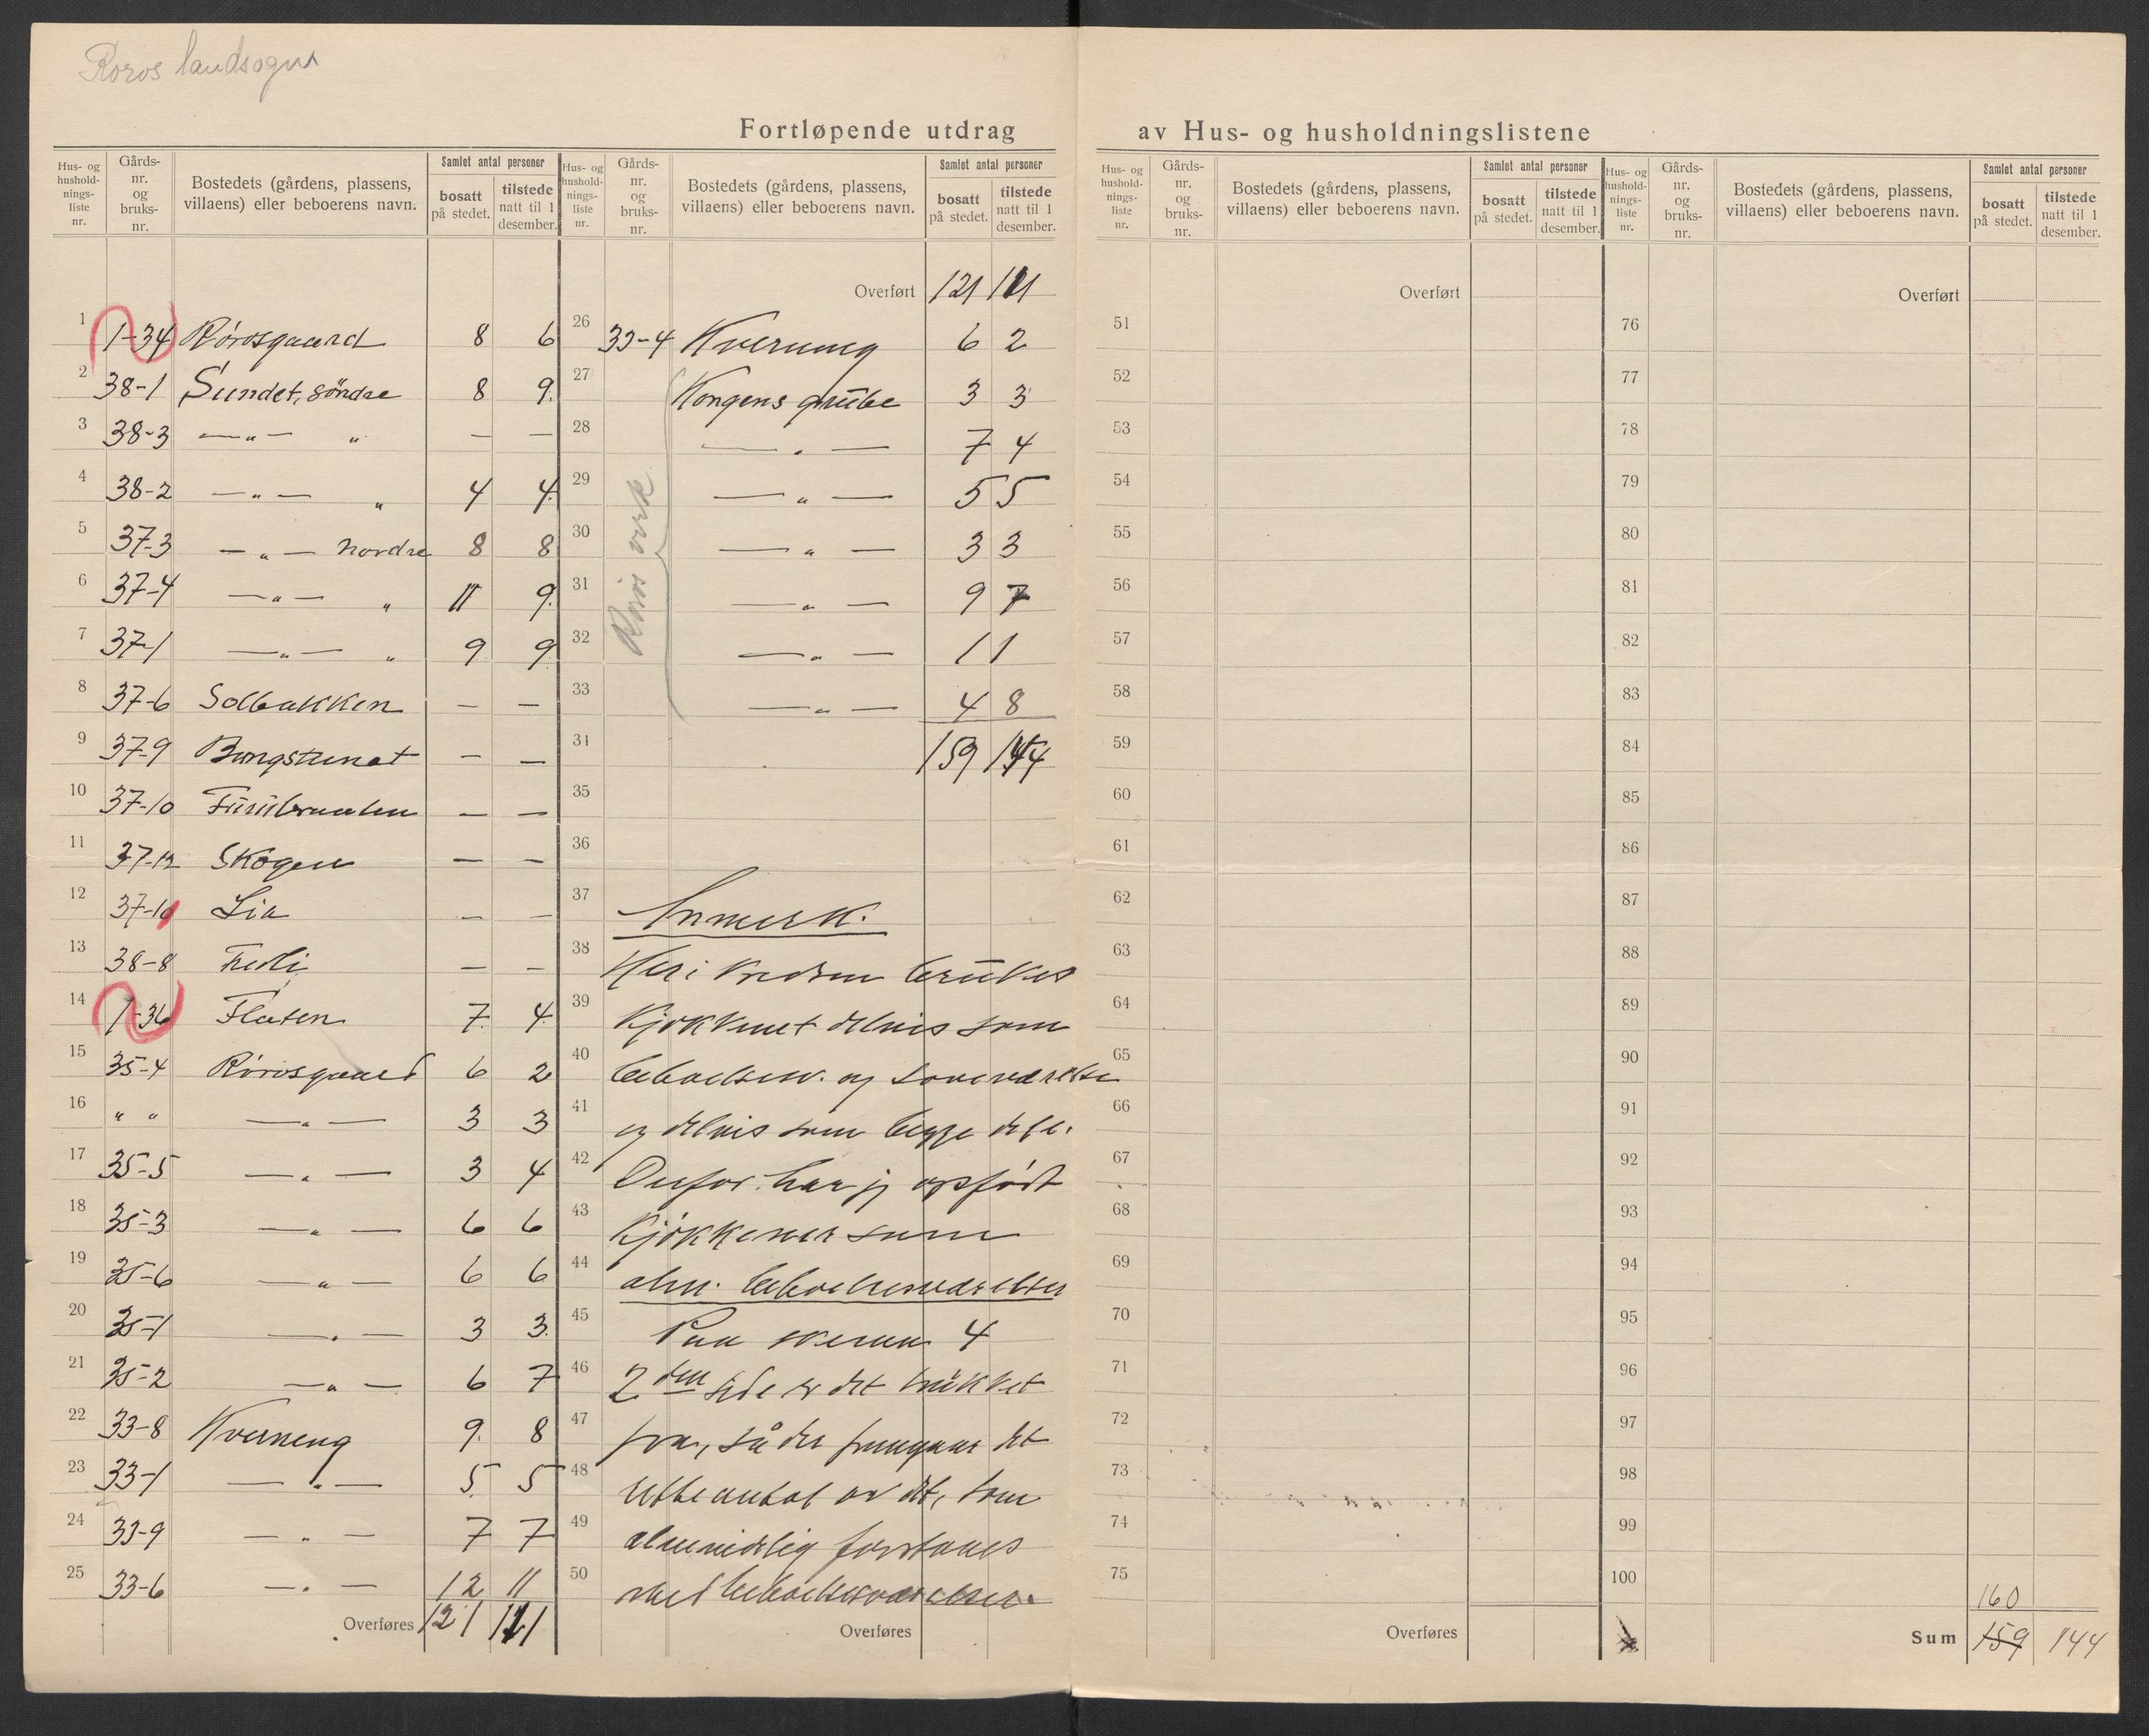 Røros landsogn
Fortløpende utdrag av Hus- og husholdningslistene
Hus- og hushold-nings-liste nr. Gårds-nr. og bruks-nr. Bostedets (gårdens, plassens, villaens) eller beboerens navn. Samlet antal personer bosatt på stedet. tilstede natt til 1 desember.
1 1-34 Rørosgaard 8 6
2 38-1 Sundet, söndre 8 9.
3 38-3 —„— „ — —
4 38-2 —„— „ 4 4.
5 37-3 —„— nordre 8 8
6 37-4 —„— „ 11 9.
7 37-1 —„— „ 9 9
8 37-6 Solbakken — —
9 37-9 — —
10 37-10 — —
11 37-12 Skogen — —
12 37-10 Lia — —
13 38-8 — —
14 1-36 Flaten 7 4
15 35-4 Rørosgaard 6 2
16 „ „ —„— 3 3
17 35-5 —„— 3 4
18 35-3 —„— 6 6
19 35-6 —„— 6 6
20 35-1 —„— 3 3.
21 35-2 —„— 6 7
22 33-8 Kverneng 9. 8
23 33-1 —„— 5 5
24 33-9 —„— 7 7
25 33-6 —„— 12 11
Overføres 121 121
Hus- og hushold-nings-liste nr. Gårds-nr. og bruks-nr. Bostedets (gårdens, plassens, villaens) eller beboerens navn. Samlet antal personer bosatt på stedet. tilstede natt til 1 desember.
Overført 121 111
26 33-4 Kverneng 6 2
Røros verk
27 Kongens grube 3 3
28 —„— 7 4
29 —„— 5 5
30 —„— 3 3
31 —„— 9 7
32 —„— 1 1
33 —„— 4 8
31 159 144
35
36
37 Anmerk.
38 Her i kredsen brukes
39 kjøkkenet delvis som
40 beboelsesv. og soveværelse
41 og delvis som begge dele.
42 Derfor har jeg opført
43 Kjøkkener som
44 alm. beboelsesværelser
45 Paa skema 4
46 2den side er det trukket
47 fra, så der fremgaar det
48 rette antal av det, som
49 almindelig forstaaes
50 med beboelsesværelser.
Overføres
Hus- og hushold-nings-liste nr. Gårds-nr. og bruks-nr. Bostedets (gårdens, plassens, villaens) eller beboerens navn. Samlet antal personer bosatt på stedet. tilstede natt til 1 desember.
Overført
51
52
53
54
55
56
57
58
59
60
61
62
63
64
65
66
67
68
69
70
71
72
73
74
75
Overføres
Hus- og hushold-nings-liste nr. Gårds-nr. og bruks-nr. Bostedets (gårdens, plassens, villaens) eller beboerens navn. Samlet antal personer bosatt på stedet. tilstede natt til 1 desember.
Overført
76
77
78
79
80
81
82
83
84
85
86
87
88
89
90
91
92
93
94
95
96
97
98
99
100
160
Sum 159 144